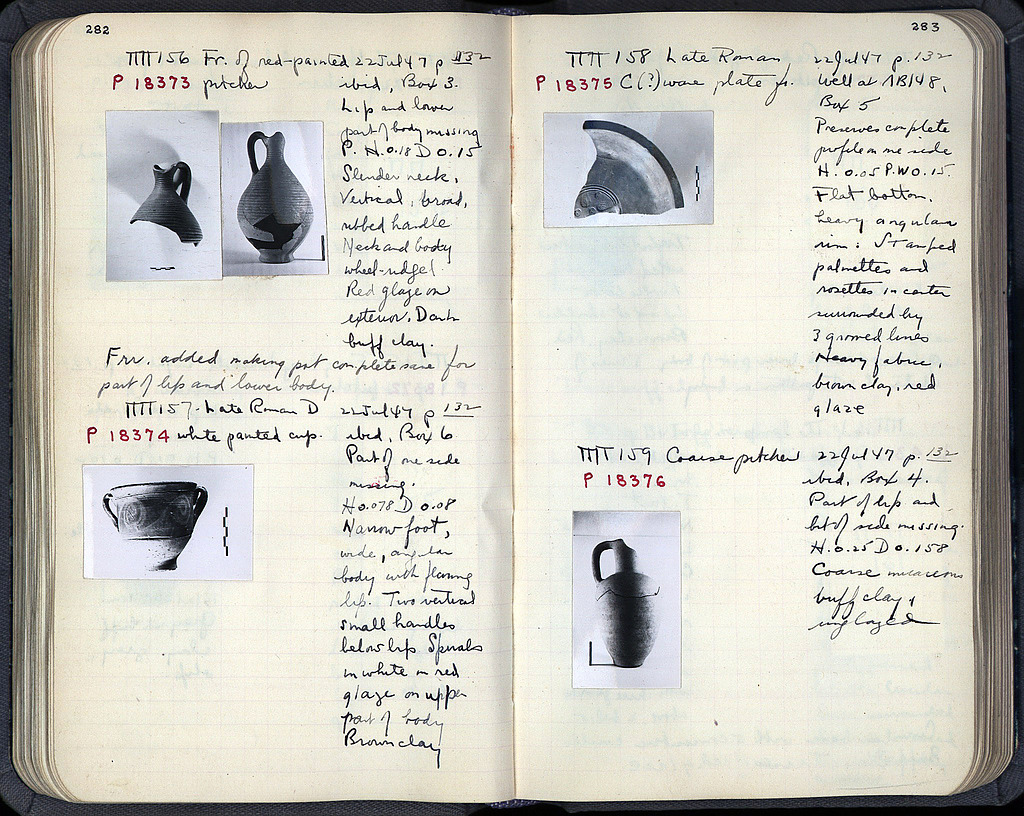 282
ΠΠ 156 Fr. of red-painted 22 Jul 47 p 132
P 18373 pitcher ibid, Box 3.
Lip and lower
part of body missing
P. H. 0.18 D 0.15
Slender neck.
Vertical, broad,
ribbed handle
Neck and body
wheel-ridged.
Red glaze on
exterior. Dark
buff clay.
Frr. added making pot complete save for
part of lip and lower body.
ΠΠ 157. Late Roman D 22 Jul 47 p 132
P 18374 white painted cup. ibid, Box 6
Part of one side
missing.
H 0.078 D 0.08
Narrow foot,
wide, angular
body with flaring
lip. Two vertical
small handles
below lip. Spirals
in white on red
glaze on upper
part of body
Brown clay
283
ΠΠ 158 Late Roman 22 Jul 47 p. 132
P 18375 C(?) ware plate fr. Well at ΛΒ/48,
Box 5
Preserves complete
profile on one side
H. 0.05 P.W 0.15.
Flat bottom.
heavy angular
rim: Stamped
palmettes and
rosettes in center
surrounded by
3 grooved lines
Heavy fabric,
brown clay, red
glaze
ΠΠ 159 Coarse pitcher 22 Jul 47 p. 132
P 18376 ibid, Box 4.
Part of lip and
bit of side missing.
H. 0.25 D 0.158
Coarse micaceous
buff clay,
unglazed